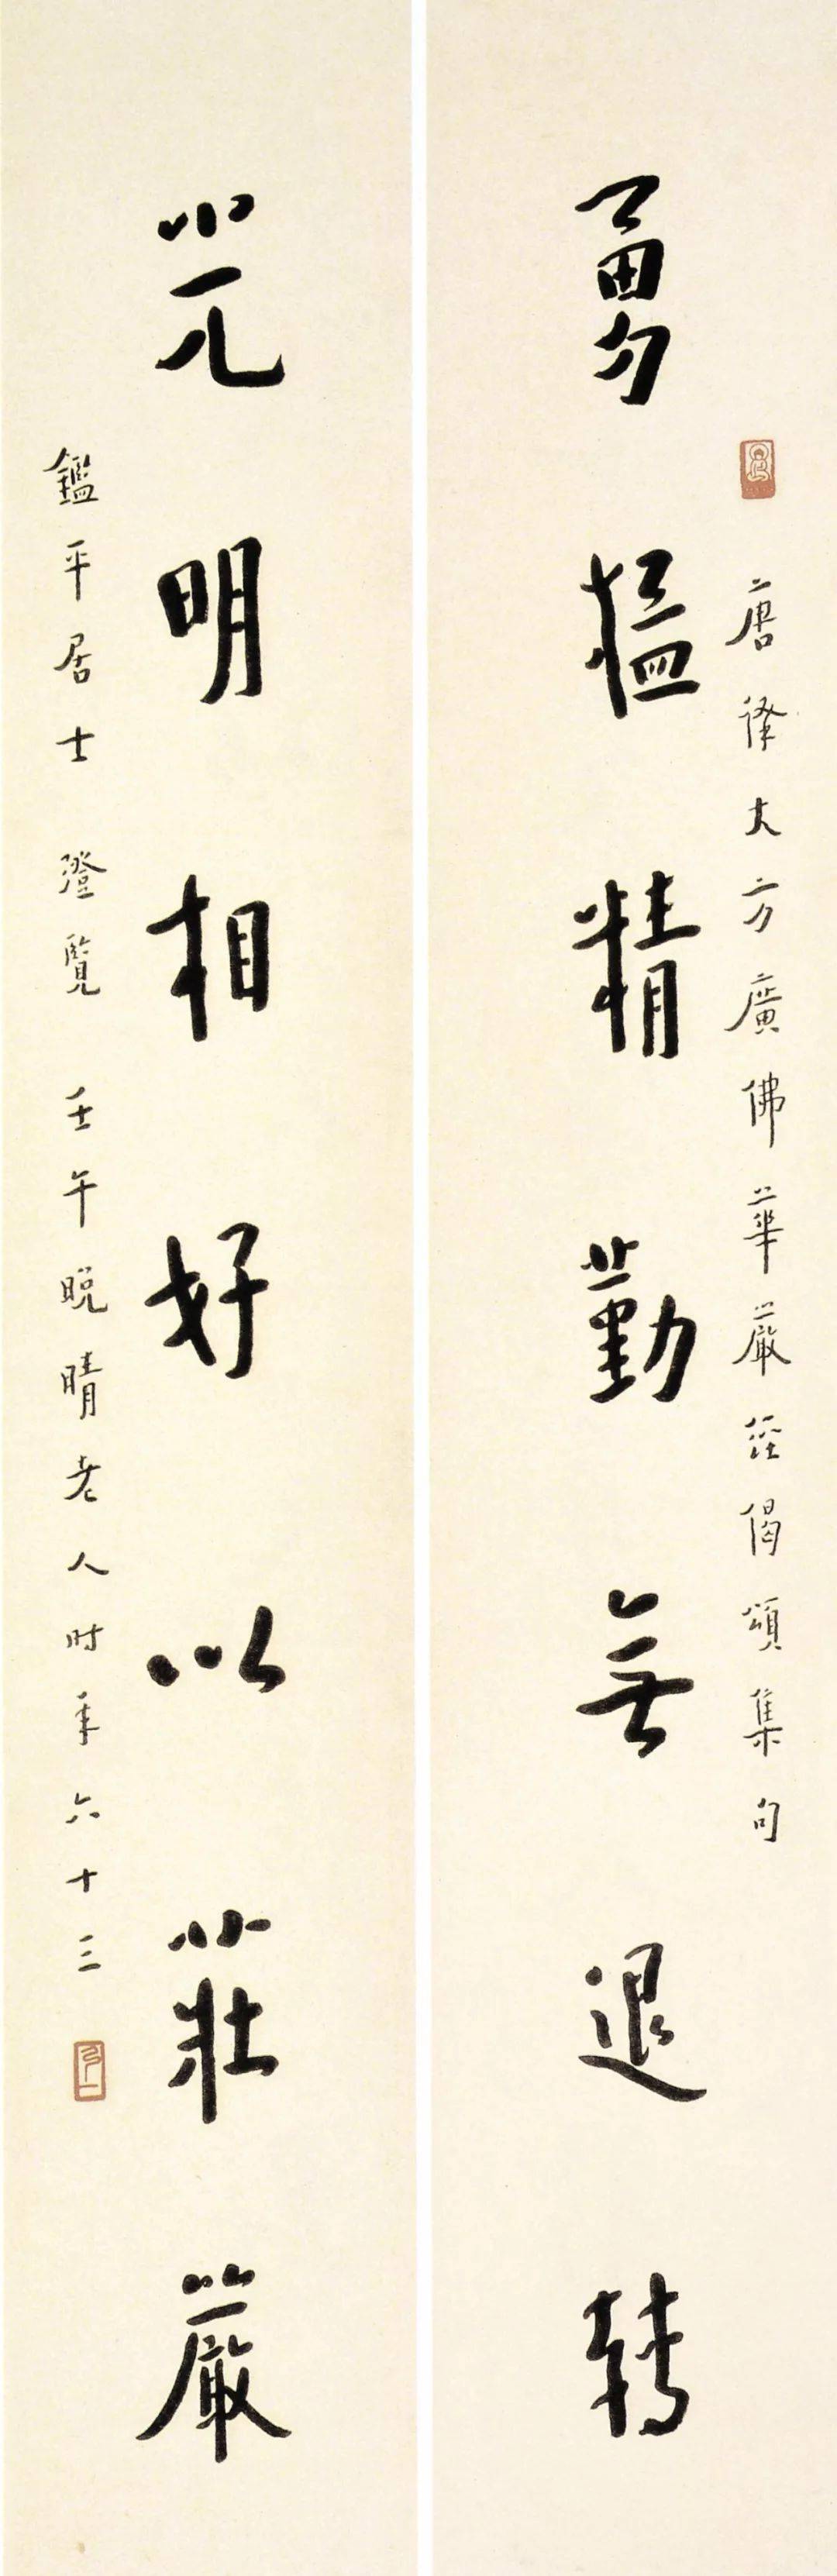 唐譯大方廣佛華嚴經偈頌集句
勇猛精勤無退轉
光明相好以莊嚴
鑑平居士 澄覽 壬午晚晴老人时年六十三
弘一